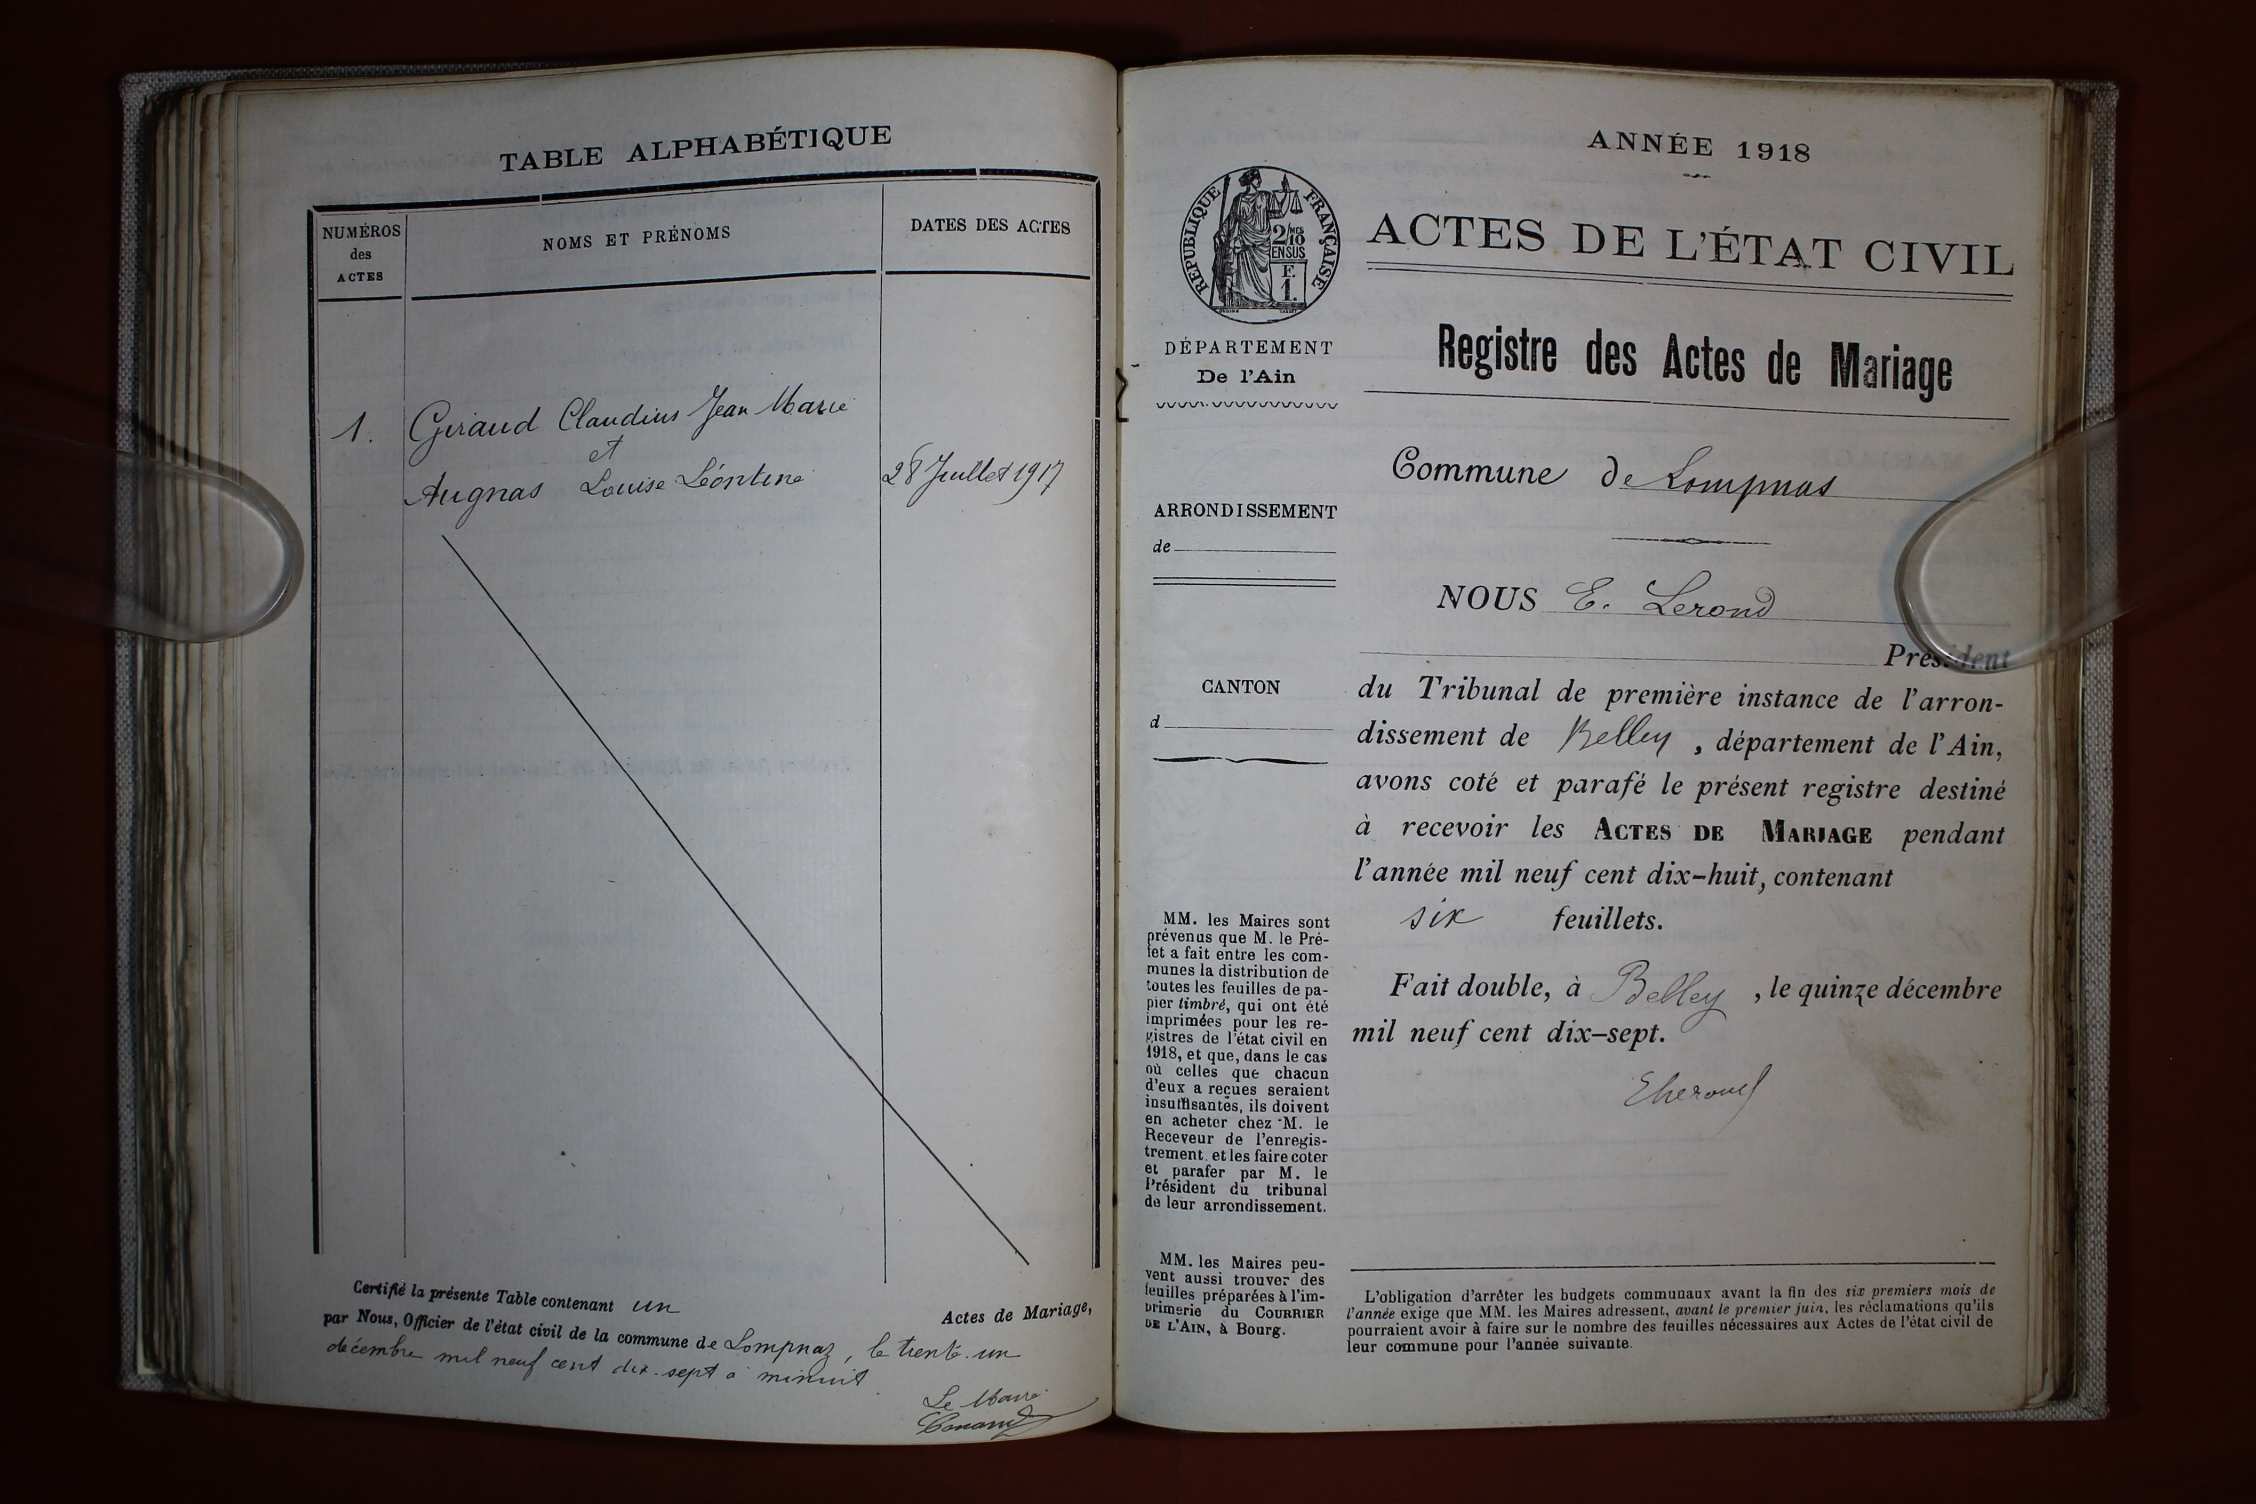 TABLE ALPHABÉTIQUE
NUMÉROS
des
ACTES
NOMS ET PRÉNOMS
DATES DES ACTES
1. Giraud Claudius Jean Marie
et
Augnas Louise Léontine 28 Juillet 1917
Certifié la présente Table contenant un Actes de Mariage,
par Nous, Officier de l'état civil de la commune de Lompnaz, le trente-un
décembre mil neuf cent dix-sept à minuit
Le Maire
ANNÉE 1918
RÉPUBLIQUE FRANÇAISE
2/MES
10
EN SUS
F.
1.
DÉPARTEMENT
De l'Ain
ARRONDISSEMENT
de
CANTON
d
MM. les Maires sont
prévenus que M. le Pré-
fet a fait entre les com-
munes la distribution de
toutes les feuilles de pa-
pier timbré, qui ont été
imprimées pour les re-
gistres de l'état civil en
1918, et que, dans le cas
où celles que chacun
d'eux a reçues seraient
insuffisantes, ils doivent
en acheter chez M. le
Receveur de l'enregis-
trement et les faire coter
et parafer par M. le
Président du tribunal
de leur arrondissement.
MM. les Maires peu-
vent aussi trouver des
feuilles préparées à l'im-
primerie du COURRIER
DE L'AIN, à Bourg.
ACTES DE L'ÉTAT CIVIL
Registre des Actes de Mariage
Commune de Lompnas
NOUS E. Lerond
Président
du Tribunal de première instance de l'arron-
dissement de Belley, département de l'Ain,
avons coté et parafé le présent registre destiné
à recevoir les ACTES DE MARIAGE pendant
l'année mil neuf cent dix-huit, contenant
six feuillets.
Fait double, à Belley, le quinze décembre
mil neuf cent dix-sept.
L'obligation d'arrêter les budgets communaux avant la fin des six premiers mois de
l'année exige que MM. les Maires adressent, avant le premier juin, les réclamations qu'ils
pourraient avoir à faire sur le nombre des feuilles nécessaires aux Actes de l'état civil de
leur commune pour l'année suivante.